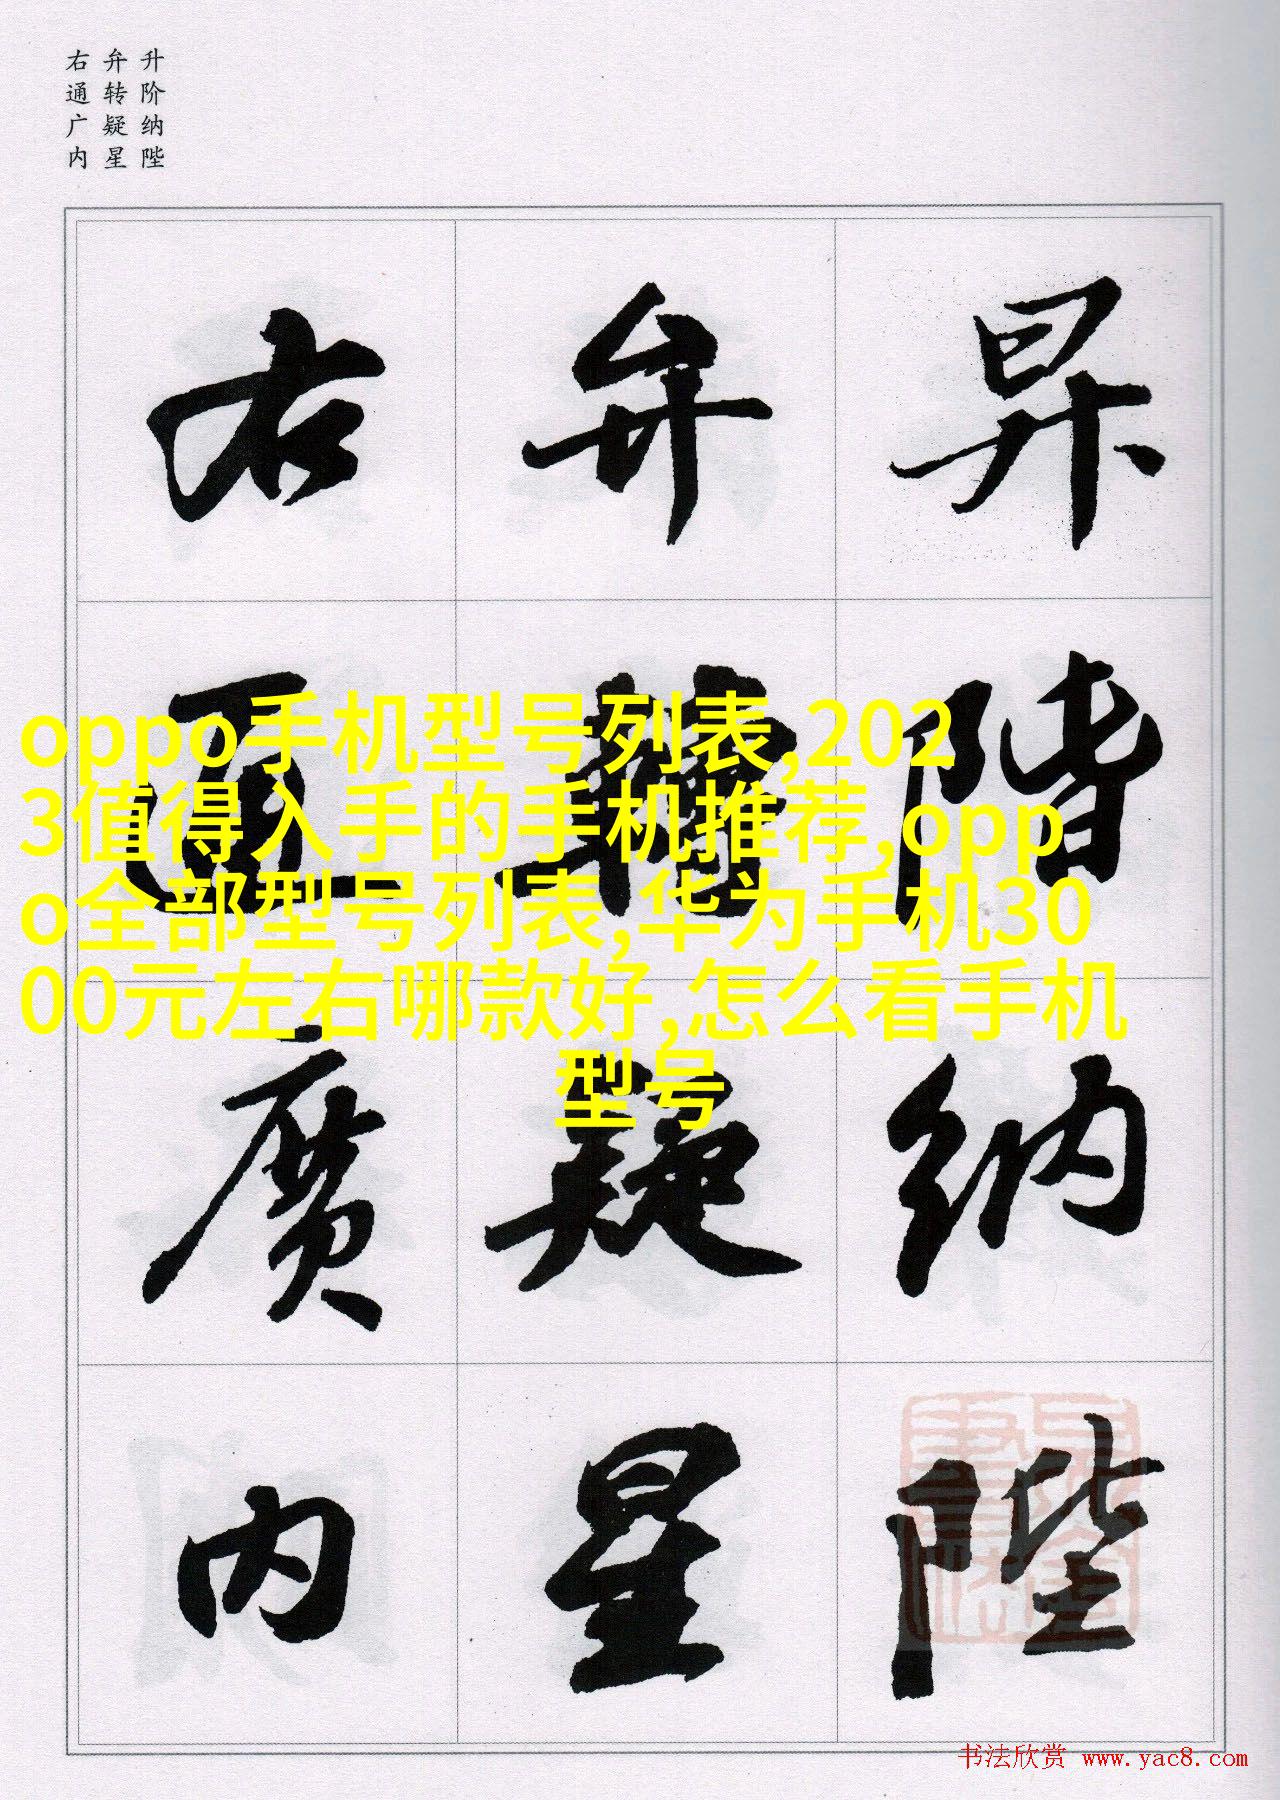 升阶纳陛
弁转疑星
右通广内
昇階納陛
弁轉疑星
右通廣内
oppo手机型号列表,202
3值得入手的手机推荐,opp
o全部型号列表,华为手机30
00元左右哪款好,怎么看手机
型号
书法欣赏 www.yac8.com